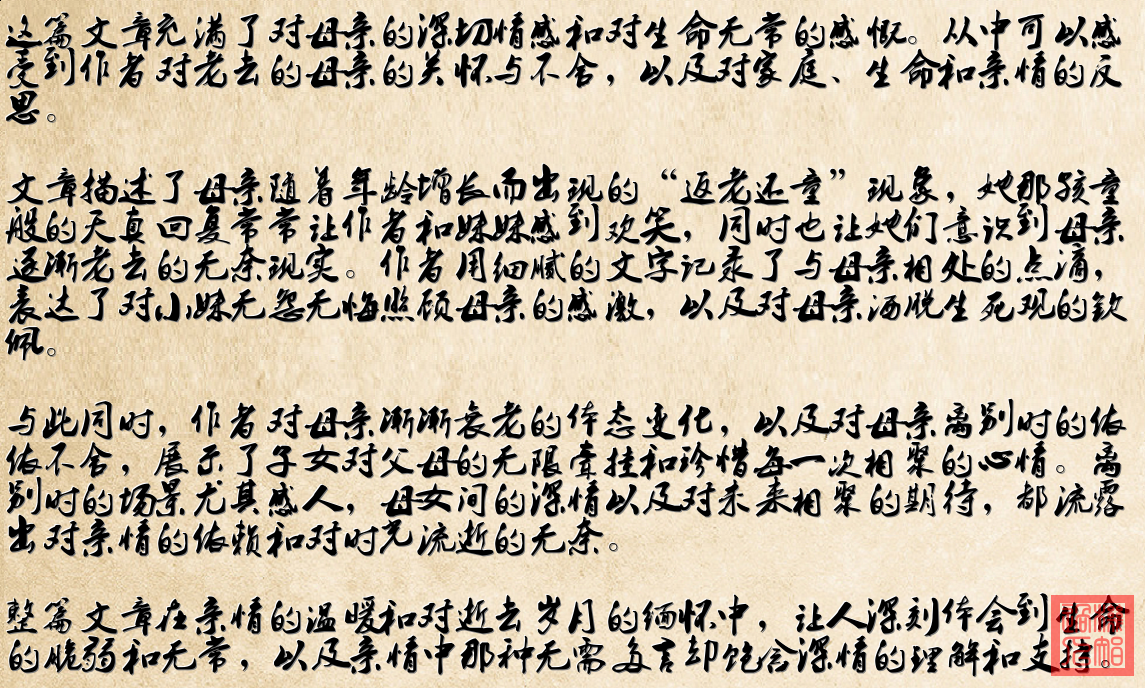 这篇文章充满了对母亲的深切情感和对生命无常的感慨。从中可以感
受到作者对老去的母亲的关怀与不舍，以及对家庭、生命和亲情的反
思。
文章描述了母亲随着年龄增长而出现的“返老还童”现象，她那孩童
般的天真回复常常让作者和妹妹感到欢笑，同时也让她们意识到母亲
逐渐老去的无奈现实。作者用细腻的文字记录了与母亲相处的点滴，
表达了对小妹无怨无悔照顾母亲的感激，以及对母亲洒脱生死观的钦
佩。
与此同时，作者对母亲渐渐衰老的体态变化，以及对母亲离别时的依
依不舍，展示了子女对父母的无限牵挂和珍惜每一次相聚的心情。离
别时的场景尤其感人，母女间的深情以及对未来相聚的期待，都流露
出对亲情的依赖和对时光流逝的无奈。
整篇文章在亲情的温暖和对逝去岁月的缅怀中，让人深刻体会到生命
的脆弱和无常，以及亲情中那种无需多言却饱含深情的理解和支持。